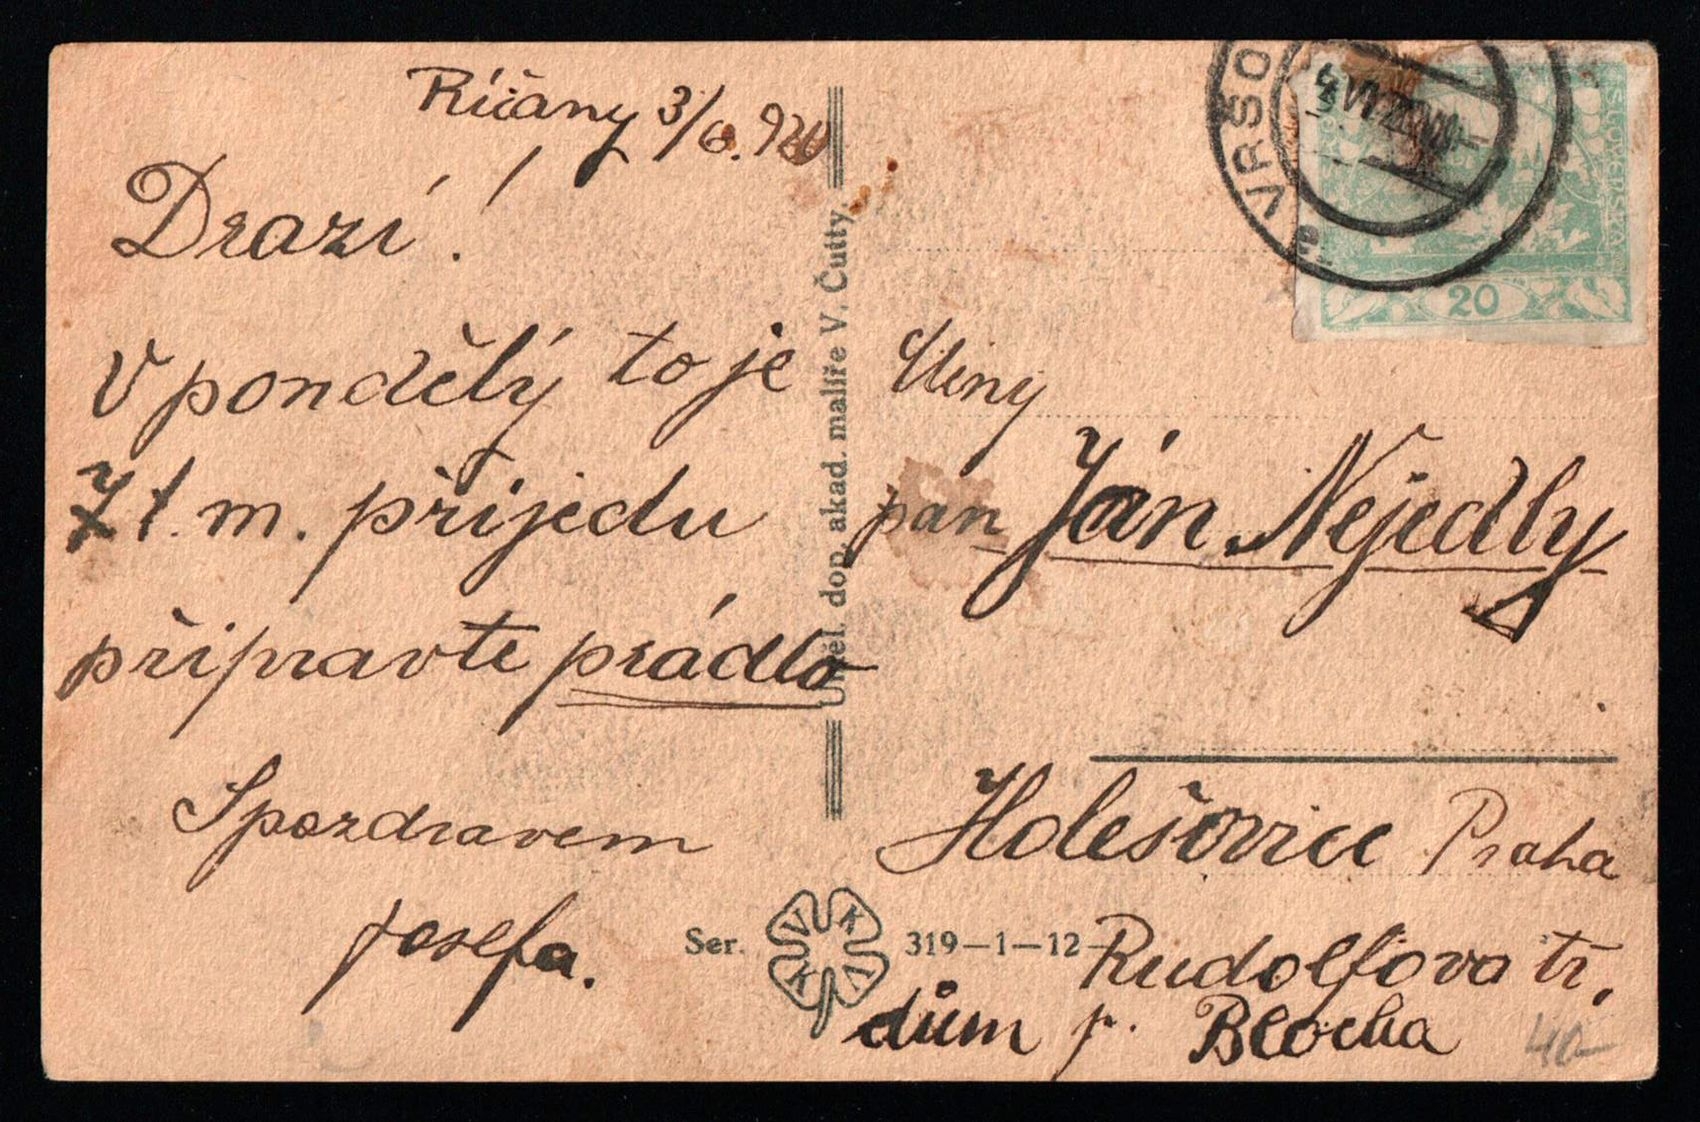 Říčany 3/6. 920
Drazí!
V pondělý to je
7 t. m. přijedu
připravte prádlo
S pozdravem
Josefa.
Uměl. dop. akad. malíře V. Čutty.
Ser. 319–1–12
VKKV
VRŠO
4 VI 20
SLOVENSKÁ
20
Ctěný
pán Ján Nejedlý
Holešovice Praha
Rudolfova tř.
dům p. Blocha
40